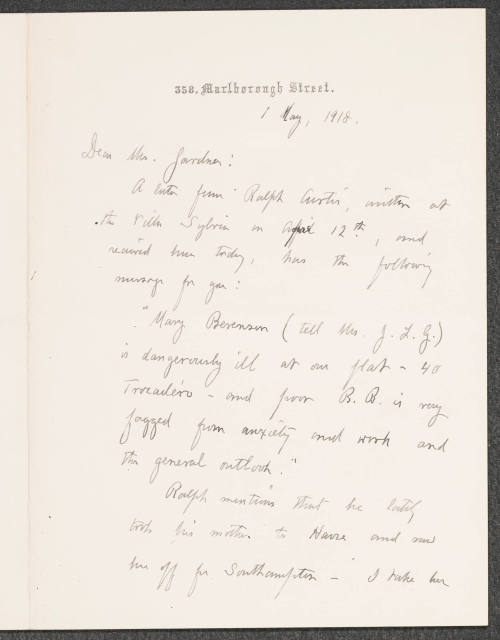 358, Marlborough Street.
1 May, 1918.
Dear Mrs. Gardner:
A letter from Ralph Curtis, written at
the Villa Sylvia on April 12th, and
received here today, has the following
message for you:
"Mary Berenson (tell Mrs. J. L. G.)
is dangerously ill at our flat - 40
Trocadéro - and poor B. B. is very
fagged from anxiety and work and
the general outlook."
Ralph mentions that he lately
took his mother to Havre and saw
her off for Southampton - I take her